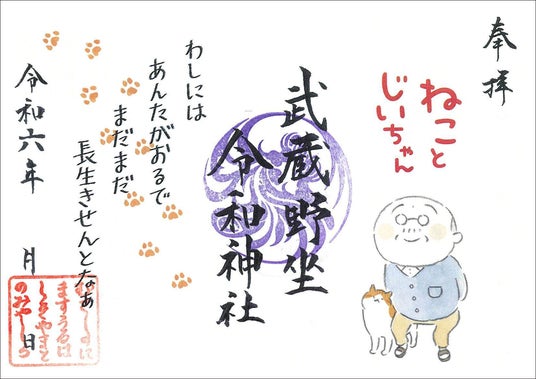 奉拝
ねこと
じいちゃん
武蔵野坐
令和神社
わしには
あんたがおるで
まだまだ
長生きせんとなぁ
令和六年 月 日
むさしのに
ますうるは
しきやまと
のみやしろ